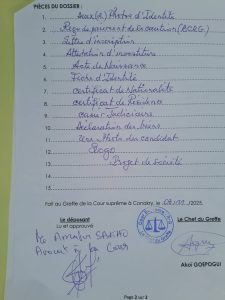 PIÈCES DU DOSSIER :
1. Deux (2) Photos d'Identité
2. Reçu de paiement de la caution (BCRG)
3. Lettre d'inscription
4. Attestation d'investiture
5. Acte de Naissance
6. Fiche d'Identité
7. Certificat de Nationalité
8. certificat de Résidence
9. casier Judiciaire
10. Déclaration des biens
11. Une Photo du candidat
12. Logo
13. Projet de Société
14.
15.
Fait au Greffe de la Cour suprême à Conakry, le /2025.
Le déposant
Lu et approuvé
Le Chef du Greffe
Me
Avocat à la Cour
Akoï GOEPOGUI
Page 2 sur 2